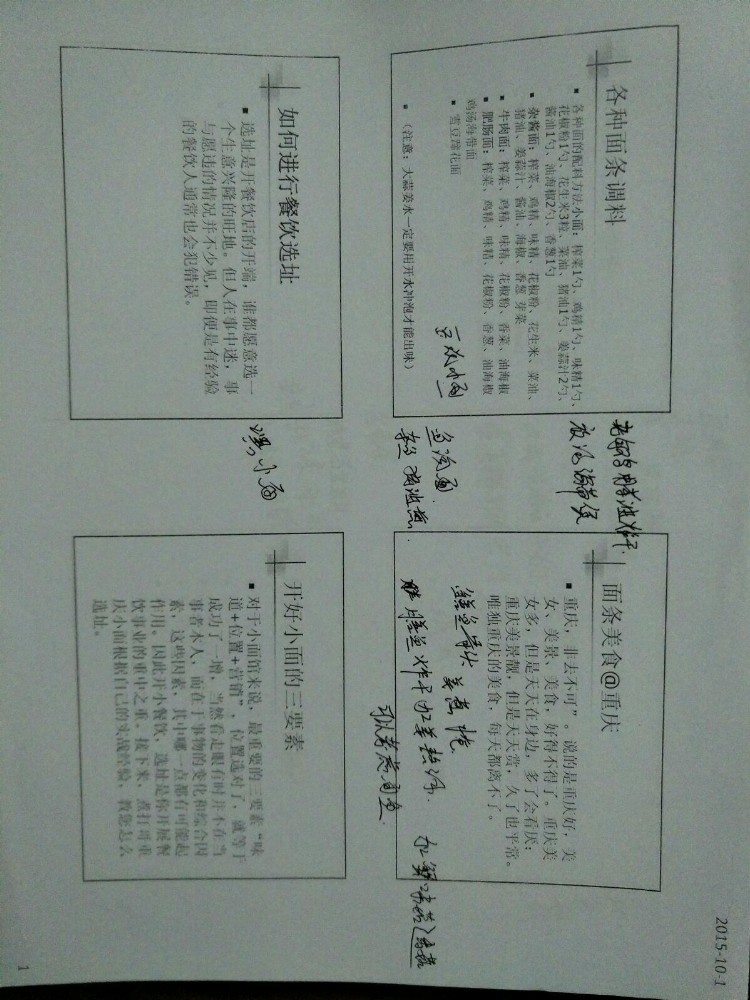 2015-10-1
各种面条调料
▪ 各种面的配料方法小面：榨菜1勺、鸡精1勺、味精1勺、
花椒粉1勺、花生米3粒、菜油、猪油1勺、姜蒜汁2勺、
酱油1勺、油海椒2勺、香葱1勺
▪ 杂酱面：榨菜、鸡精、味精、花椒粉、花生米、菜油、
猪油、姜蒜汁、酱油、海椒、香葱 芽菜
▪ 牛肉面：榨菜、鸡精、味精、花椒粉、香菜、油海椒
▪ 肥肠面：榨菜、鸡精、味精、花椒粉、香葱、油海椒
鸡汤海带面
▪ 雪豆蹄花面
▪ （注意：大蒜姜水一定要用开水冲泡才能出味）
豌杂小面
面条美食@重庆
▪ 重庆，非去不可”。说的是重庆好，美
女、美景、美食，好得不得了。重庆美
女多，但是天天在身边，多了会看厌；
重庆美景靓，但是天天赏，久了也平常。
唯独重庆的美食，每天都离不了。
如何进行餐饮选址
▪ 选址是开餐饮店的开端，谁都愿意选一
个生意兴隆的旺地。但人在事中迷，事
与愿违的情况并不少见，即便是有经验
的餐饮人通常也会犯错误。
小面
开好小面的三要素
▪ 对于小面馆来说，最重要的三要素“味
道+位置+营销”，位置选对了，就等于
成功了一增，当然看走眼有时并不在当
事者本人，而在于事物的变化和综合因
素，这些因素，其中哪一点都有可能起
作用。因此开小餐饮，选址是你开展餐
饮事业的重中之重。接下来，煮扛哥重
庆小面根据自己的实战经验，教您怎么
选址。
1